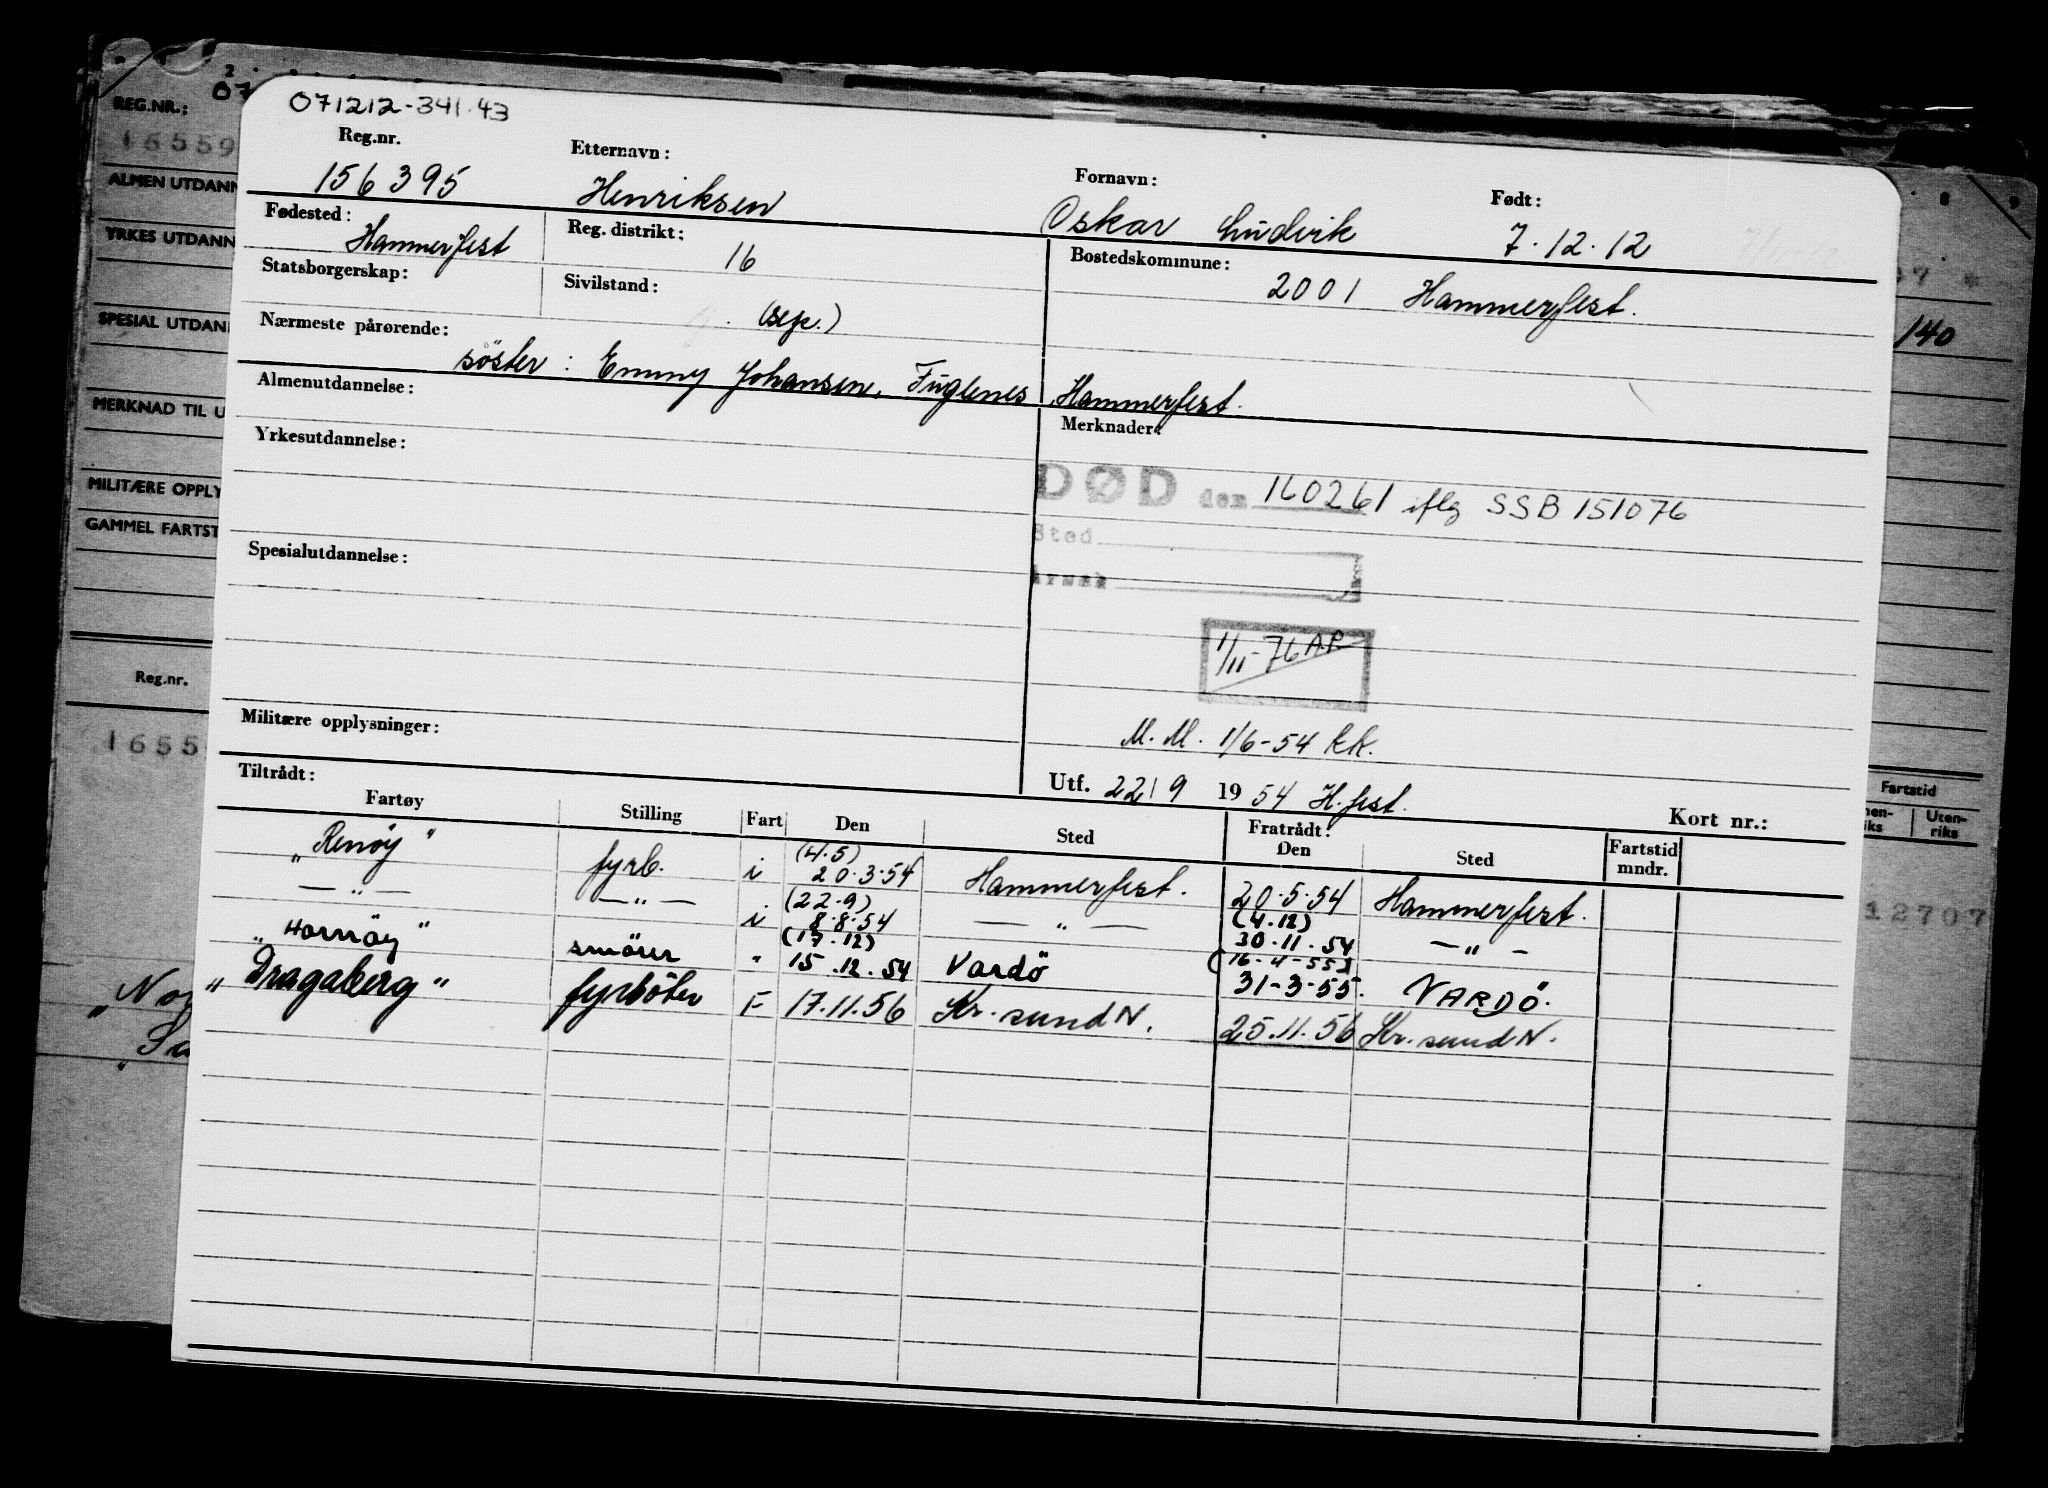 071212-341.43
Reg.nr. Etternavn: Fornavn: Født:
156395 Henriksen Oskar Ludvik 7.12.12
Fødested: Hammerfest Reg. distrikt: 16 Bostedskommune: 2001 Hammerfest.
Statsborgerskap: Sivilstand: (sep.)
Nærmeste pårørende: söster: Emmy Johansen, Fuglenes, Hammerfest.
Almenutdannelse: Merknader:
Yrkesutdannelse:
DØD den 160261 iflg SSB 151076
Sted
Spesialutdannelse:
1/11-76 A.P.
Militære opplysninger:
M.M. 1/6-54 kk.
Utf. 22/9 1954 H.fest.
Tiltrådt: Kort nr.:
Fartøy Stilling Fart Den Sted Fratrådt: Den Sted Fartstid mndr.
"Renöy" fyrb. i (4.5) 20.3.54 Hammerfest. 20.5.54 Hammerfest.
— " — — " — i (22.9) 8.8.54 — " — (4.12) 30.11.54 — " —
"Hornöy" smörer " (17.12) 15.12.54 Vardö (16-4-55) 31-3-55. VARDÖ.
"Dragaberg" fyrböter F 17.11.56 Kr.sund N. 25.11.56 Kr.sund N.
REG.NR.: 07
16559
ALMEN UTDANN
YRKES UTDANN
SPESIAL UTDAN
140
MERKNAD TIL U
MILITÆRE OPPLY
GAMMEL FARTST
Reg.nr.
1655
Fartstid
Uten-
riks
12707
"Nor